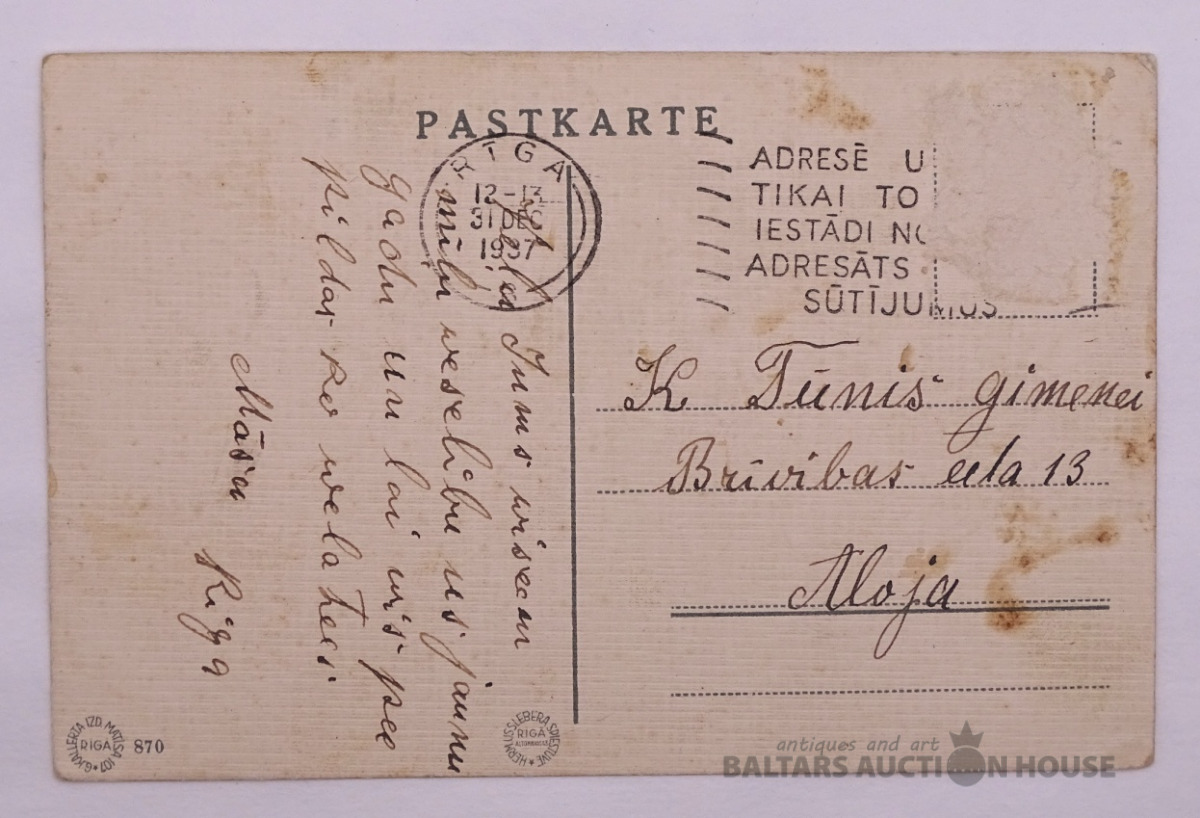 PASTKARTE
RĪGA
12-13
31 DEC
1937
ADRESĒ U
TIKAI TO
IESTĀDI NO
ADRESĀTS
SŪTĪJUMUS
Jums wiseem
mīļu weselību us jaunu
gadu un lai wis pee
pildas ko welatees
Māsa
Riga
K Tūnis gimenei
Brīvibas iela 13
Aloja
G.KALLERTA IZD. MATĪSA 107
RIGA
870
HERM. U SLEBERA SPIESTUVE
RIGA
antiques and art
BALTARS AUCTION HOUSE